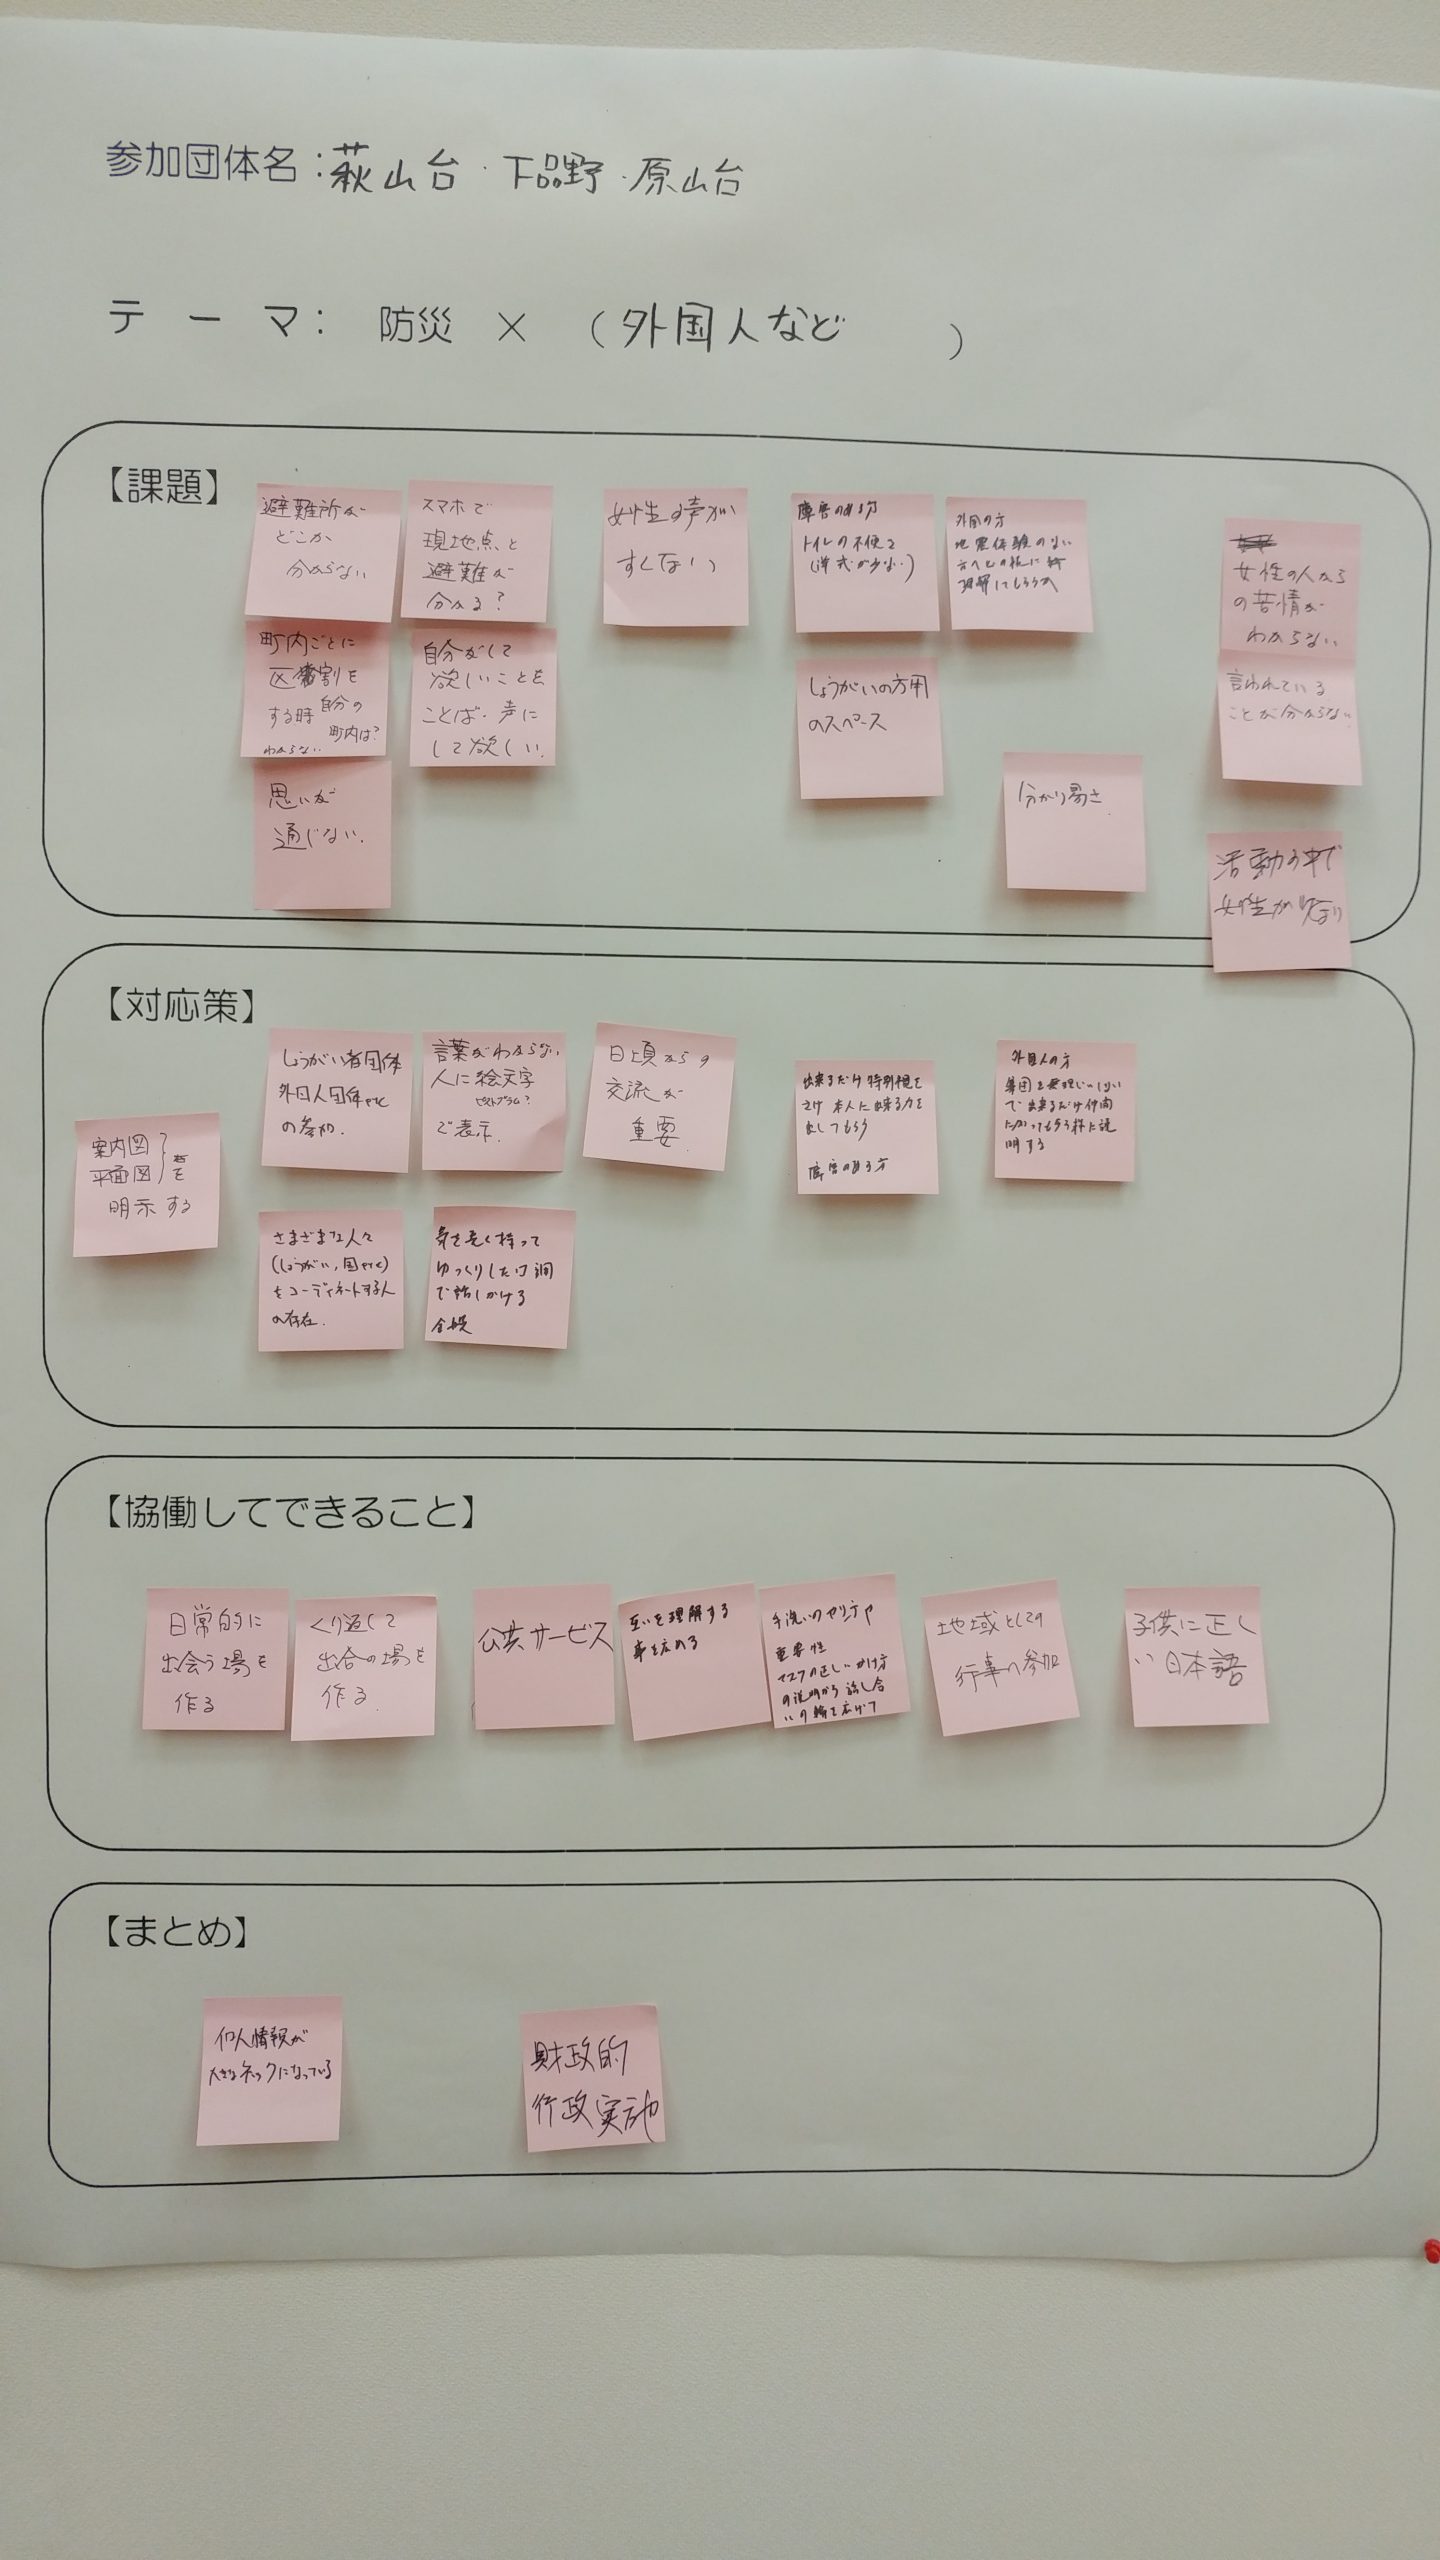 参加団体名：萩山台・下品野・原山台
テーマ：防災×（外国人など　）
【課題】
避難所が
どこか
分からない
スマホで
現地点と
避難が
分かる?
女性の声が
すくない
障害のある方
トイレの不便さ
(洋式が少ない)
外国の方
地震体験のない
方へどの様に
理解してもらうか
女性の人から
の苦情が
わからない
町内ごとに
区割を
する時 自分の
町内は?
わからない
自分がして
欲しいことを
ことば・声に
して欲しい.
しょうがいの方用
のスペース
言われている
ことが分からない
思いが
通じない.
分かり易さ
活動の中で
女性が少ない
【対応策】
しょうがい者団体
外国人団体etc
の参加.
言葉がわからない
人に絵文字
ピクトグラム?
で表示.
日頃からの
交流が
重要.
出来るだけ特別視を
さけ 本人に出来る力を
出してもらう
障害のある方
外国人の方
出来るだけ仲間
になってもらう様に説
明する
案内図
平面図
を
明示する
さまざまな人々
(しょうがい,国etc)
をコーディネートする人
の存在.
気を長く持って
ゆっくりした口調
で話しかける
全般
【協働してできること】
日常的に
出会う場を
作る
くり返して
出合の場を
作る.
公共サービス
互いを理解する
事を広める
手洗いの
重要性
マスクの正しいかけ方
の説明から 話し合
いの輪を広げて
地域としての
行事へ参加
子供に正し
い日本語
【まとめ】
個人情報が
大きなネックになっている
財政的
行政実施